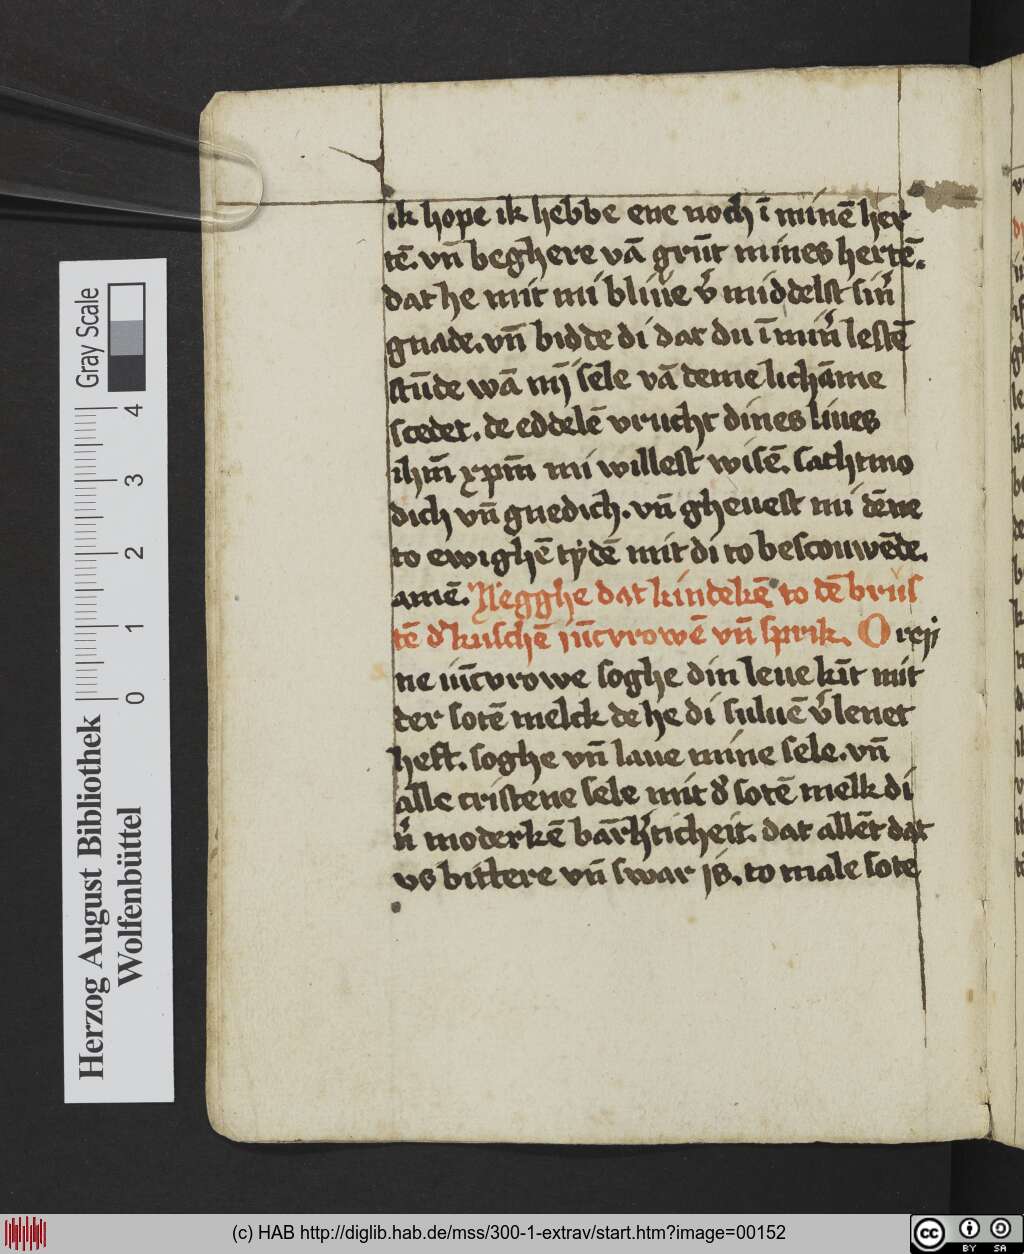 ik hope ik hebbe ene noch ī minē her
tē. vn̄ beghere vā grūt mines hertē.
dat he mit mi bliue v̾ middelst sin̾
gnade. vn̄ bidde di dat du ī min̾ lestē
stūde wā mij sele vā deme lichāme
scedet. de eddelē vrucht dines liues
ihm̄ xpm̄ mi willest wisē. sachtmo
dich vn̄ gnedich. vn̄ gheuest mi dēne
to ewighē tydē mit di to bescouwēde.
amē. Negghe dat kindekē to dē brus
tē d̾ kuschē iūcvrowē vn̄ sprik. O rey
ne iūcvrowe soghe din leue kīt mit
der sotē melck de he di suluē v̾lenet
heft. soghe vn̄ laue mine sele. vn̄
alle cristene sele mit d̾ sotē melk di
n̾ moderkē barm̄h̾ticheit. dat allēt dat
vs bittere vn̄ swar is. to male sote
Herzog August Bibliothek
Wolfenbüttel
0 1 2 3 4
Gray Scale
(c) HAB http://diglib.hab.de/mss/300-1-extrav/start.htm?image=00152
cc BY SA